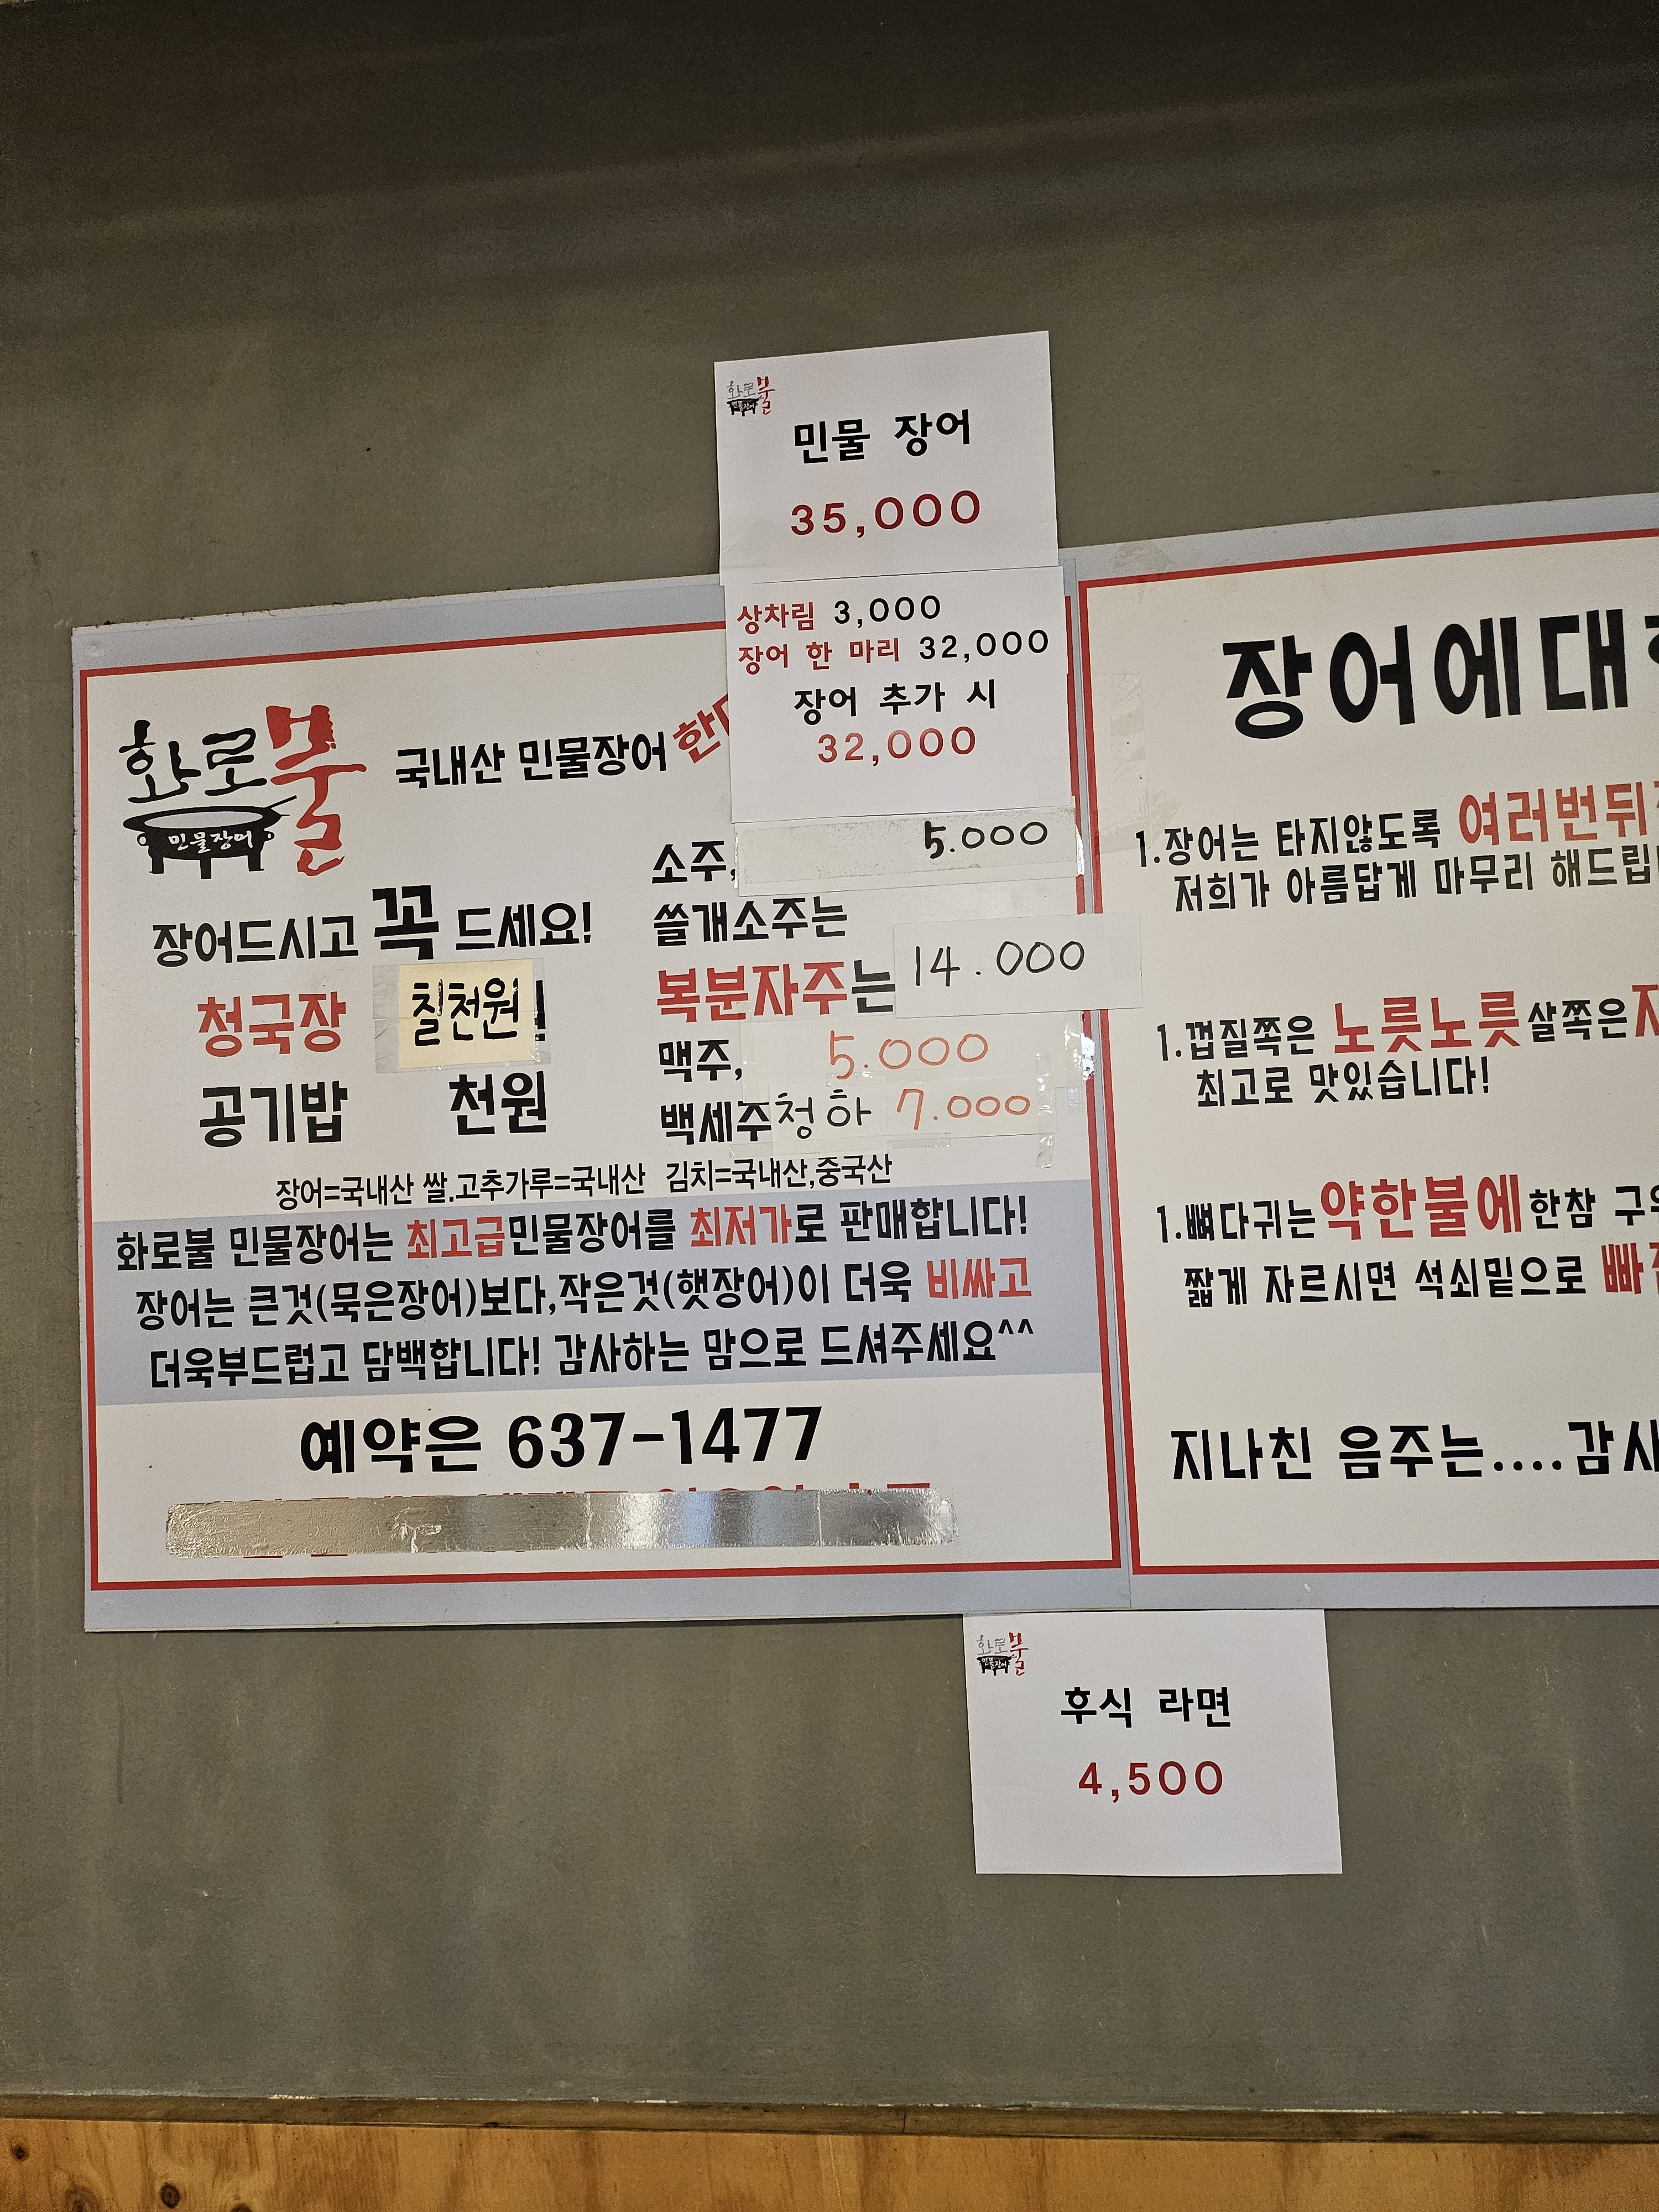 화로불
민물장어
민물 장어
35,000
상차림 3,000
장어 한 마리 32,000
장어 추가 시
32,000
화로불
민물장어
국내산 민물장어
장어드시고 꼭 드세요!
청국장 칠천원
공기밥 천원
소주, 5.000
쓸개소주는
복분자주는 14.000
맥주, 5.000
백세주 청하 7.000
장어=국내산 쌀.고추가루=국내산 김치=국내산,중국산
화로불 민물장어는 최고급민물장어를 최저가로 판매합니다!
장어는 큰것(묵은장어)보다,작은것(햇장어)이 더욱 비싸고
더욱부드럽고 담백합니다! 감사하는 맘으로 드셔주세요^^
예약은 637-1477
장어에대
1.장어는 타지않도록 여러번뒤
저희가 아름답게 마무리 해드립
1.껍질쪽은 노릇노릇살쪽은
최고로 맛있습니다!
1.뼈다귀는약한불에한참 구
짧게 자르시면 석쇠밑으로 빠
지나친 음주는....감사
화로불
민물장어
후식 라면
4,500